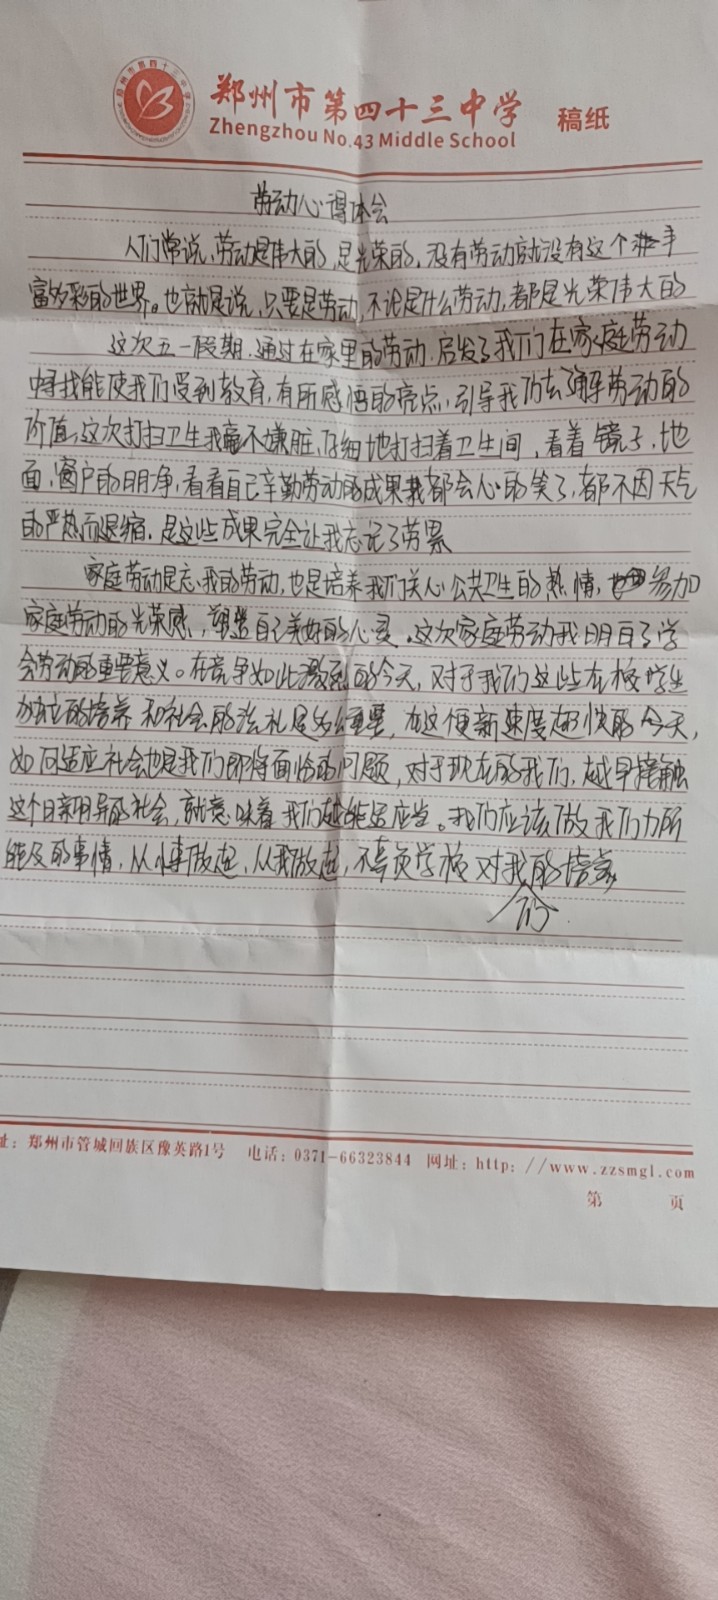 郑州市第四十三中学 稿纸
Zhengzhou No.43 Middle School
劳动心得体会
人们常说,劳动是伟大的,是光荣的,没有劳动就没有这个丰
富多彩的世界。也就是说,只要是劳动,不论是什么劳动,都是光荣伟大的
这次五一假期,通过在家里的劳动,启发了我们在家庭劳动
中寻找能使我们受到教育,有所感悟的亮点,引导我们去了解劳动的
价值,这次打扫卫生我毫不嫌脏,仔细地打扫着卫生间,看着镜子,地
面,窗户的明净,看看自己辛勤劳动的成果我都会心的笑了,都不因天气
的严热而退缩,是这些成果完全让我忘记了劳累
家庭劳动是忘我的劳动,也是培养我们关心公共卫生的热情,参加
家庭劳动的光荣感,塑造自己美好的心灵。这次家庭劳动我明白了学
会劳动的重要意义。在竞争如此激烈的今天,对于我们这些在校学生
独立的培养和社会的洗礼尤为重要,在这更新速度超快的今天,
如何适应社会也是我们即将面临的问题,对于现在的我们,越早接触
这个日新月异的社会,就意味着我们越能适应当。我们应该做我们力所
能及的事情,从小事做起,从我做起,不辜负学校对我的培养
址:郑州市管城回族区豫英路1号 电话:0371-66323844 网址:http://www.zzsmgl.com
第 页